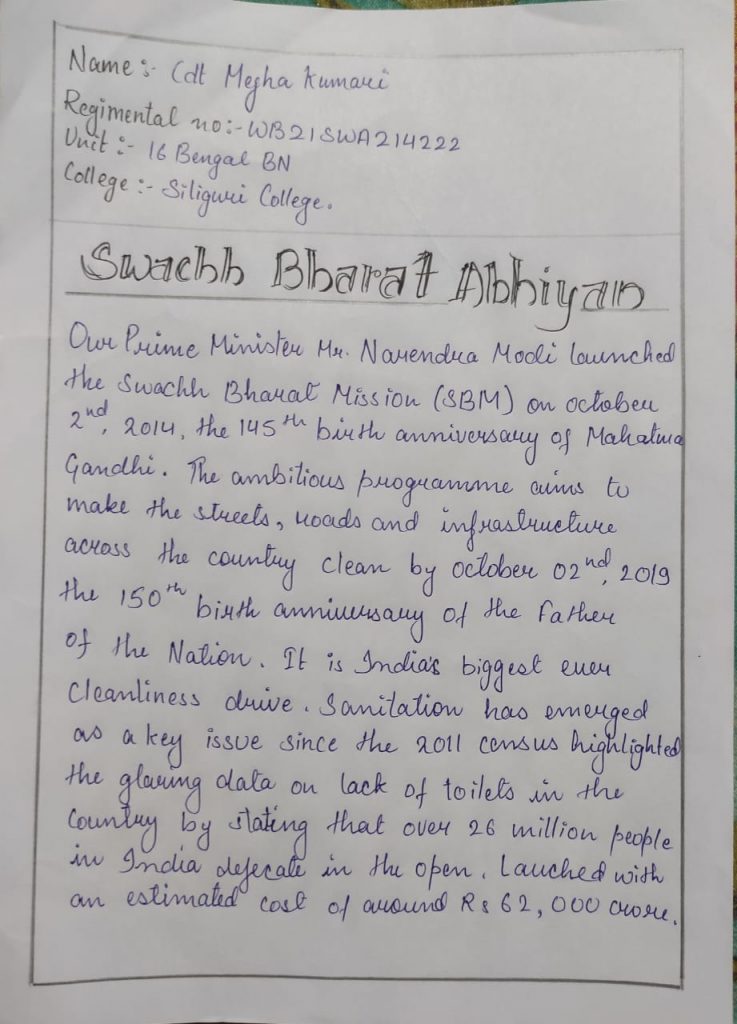 Name :- Cdt Megha Kumari
Regimental no:- WB21SWA214222
Unit :- 16 Bengal BN
College :- Siliguri College.
Swachh Bharat Abhiyan
Our Prime Minister Mr. Narendra Modi launched
the Swachh Bharat Mission (SBM) on october
2nd, 2014, the 145th birth anniversary of Mahatma
Gandhi. The ambitious programme aims to
make the streets, roads and infrastructure
across the country clean by october 02nd, 2019
the 150th birth anniversary of the Father
of the Nation. It is India's biggest ever
Cleanliness drive. Sanitation has emerged
as a key issue since the 2011 census highlighted
the glaring data on lack of toilets in the
Country by stating that over 26 million people
in India defecate in the open. Lauched with
an estimated cost of around Rs 62,000 crore.